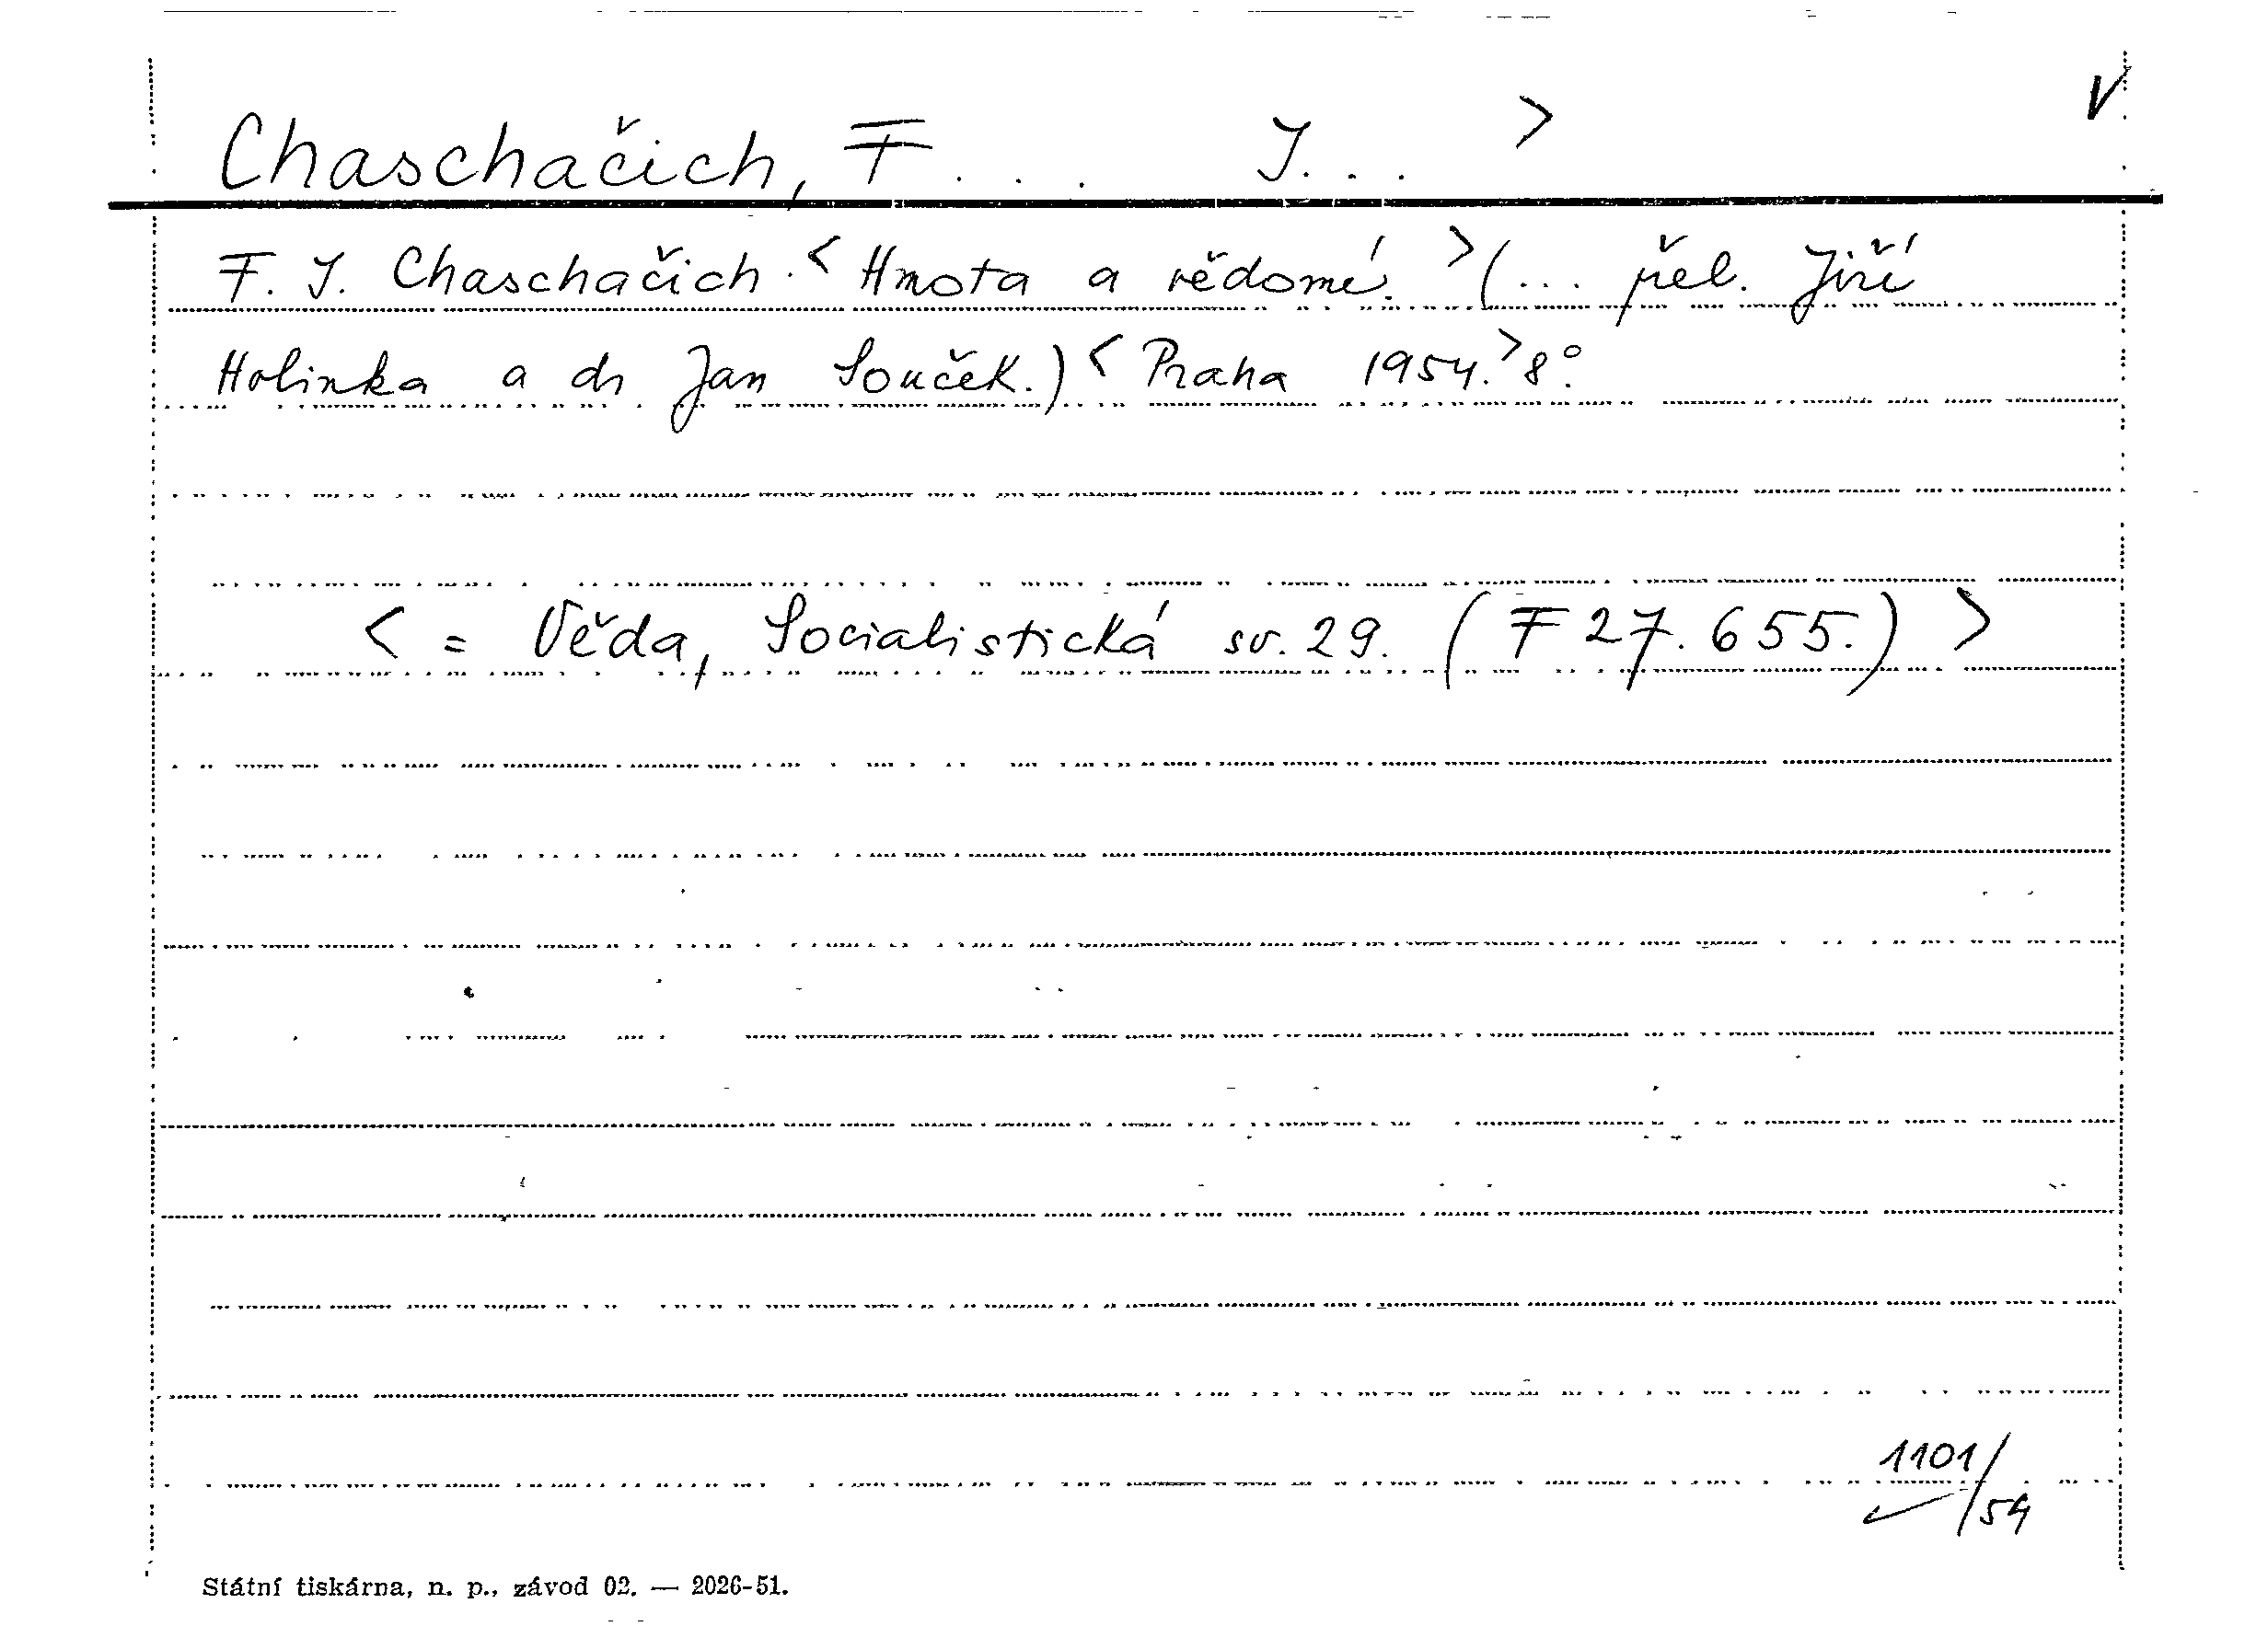 Chaschačich, F... J... > V
F. J. Chaschačich. < Hmota a vědomí. > (... přel. Jiří
Holinka a dr Jan Souček.) < Praha 1954. > 8°.
< = Věda, Socialistická sv. 29. (F 27.655.) >
1101/54
Státní tiskárna, n. p., závod 02. — 2026-51.